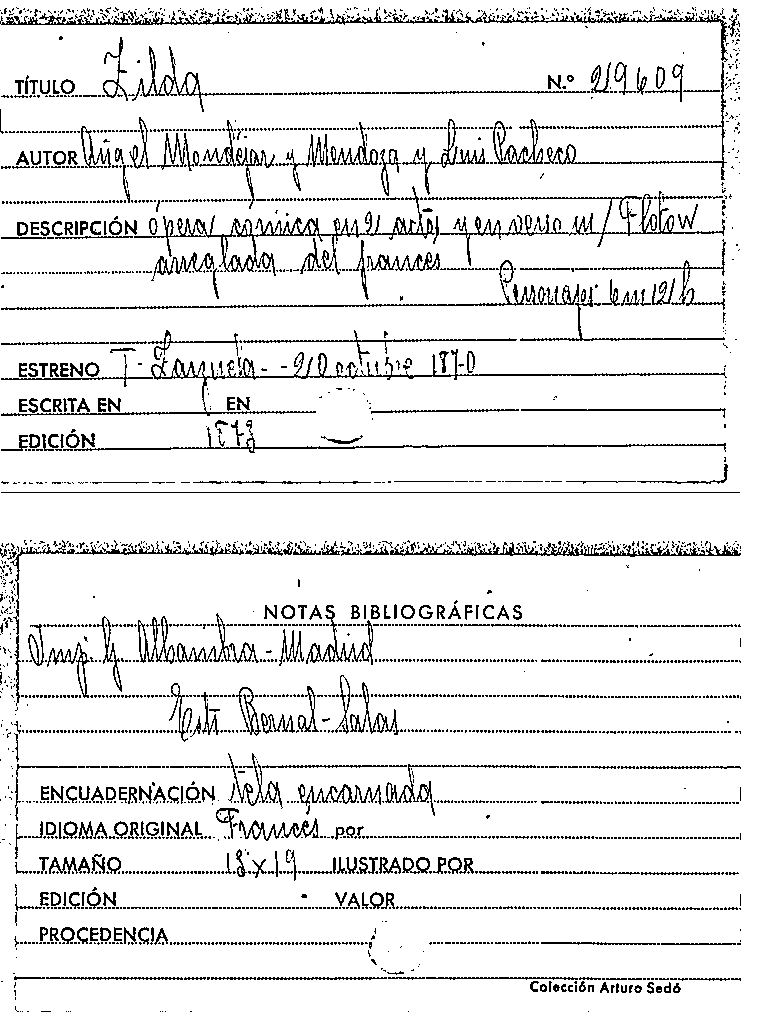 TÍTULO Zilda N.º 219609
AUTOR Angel Mondéjar y Mendoza y Luis Pacheco
DESCRIPCIÓN ópera cómica en 2 actos y en verso m/ Flotow
arreglada del frances
Personajes 6 m 2 h
ESTRENO T- Zarzuela - 20 octubre 1870
ESCRITA EN EN
EDICIÓN 1873
NOTAS BIBLIOGRÁFICAS
Imp. y Alhambra - Madrid
Bernal - Salas
ENCUADERNACIÓN tela encarnada
IDIOMA ORIGINAL Francés por
TAMAÑO 13 x 19 ILUSTRADO POR
EDICIÓN VALOR
PROCEDENCIA
Colección Arturo Sedó